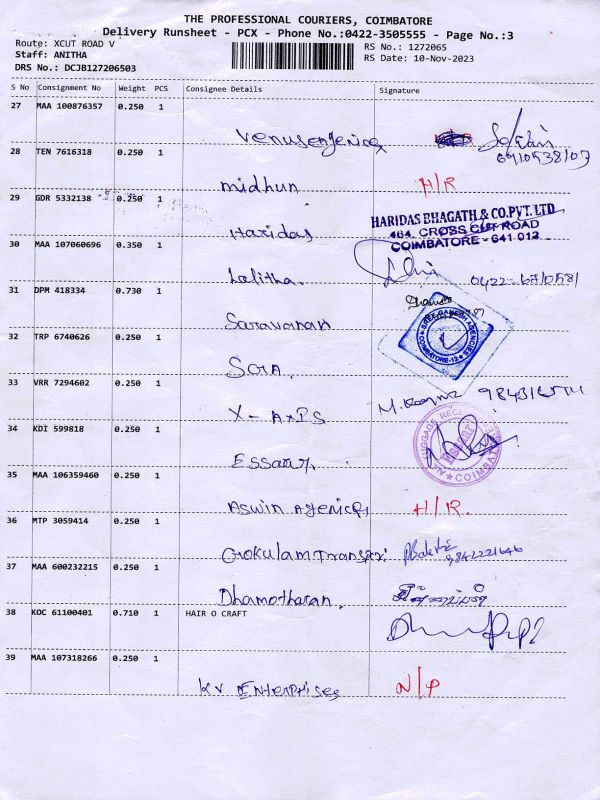 THE PROFESSIONAL COURIERS, COIMBATORE
Delivery Runsheet - PCX - Phone No.:0422-3505555 - Page No.:3
Route: XCUT ROAD V
RS No.: 1272065
Staff: ANITHA
RS Date: 10-Nov-2023
DRS No.: DCJB127206503
S No Consignment No Weight PCS Consignee Details Signature
27 MAA 100876357 0.250 1
28 TEN 7616318 0.250 1
midhun H/R
29 GDR 5332138 0.250 1
Haridas
HARIDAS BHAGATH & CO.PVT.LTD
464, CROSS CUT ROAD
COIMBATORE - 641 012
30 MAA 107060696 0.350 1
Lalitha.
31 DPM 418334 0.730 1
Saravanan
SREE GANESH AGENCIES
COIMBATORE-12
32 TRP 6740626 0.250 1
33 VRR 7294602 0.250 1
34 KDI 599818 0.250 1
COIMBATORE
35 MAA 106359460 0.250 1
Aswin H/R.
36 MTP 3059414 0.250 1
Gokulam 9842221646
37 MAA 600232215 0.250 1
Dhamotharan.
38 KOC 61100401 0.710 1 HAIR O CRAFT
39 MAA 107318266 0.250 1
KV Enterprises N/P